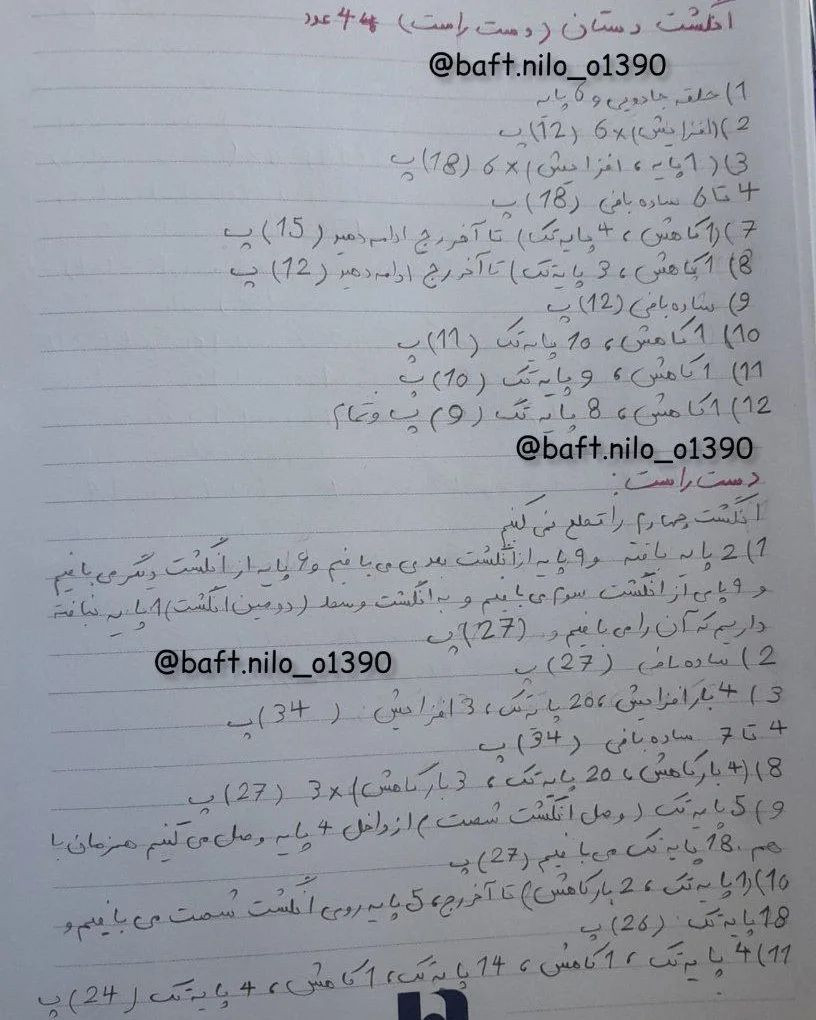 انگشت دستان (دست راست) 4 عدد
@baft.nilo_o1390
1) حلقه جادویی و 6 پایه
2) (افزایش) × 6 (12) پ
3) (1 پایه، افزایش) × 6 (18) پ
4 تا 6 ساده بافی (18) پ
7) (1 کاهش، 4 پایه تک) تا آخر رج ادامه دهید (15) پ
8) 1 کاهش، 3 پایه تک) تا آخر رج ادامه دهید (12) پ
9) ساده بافی (12) پ
10) 1 کاهش، 10 پایه تک (11) پ
11) 1 کاهش، 9 پایه تک (10) پ
12) 1 کاهش، 8 پایه تک (9) پ و تمام
@baft.nilo_o1390
دست راست:
انگشت چهارم را قطع نمی کنیم
1) 2 پایه بافته و 9 پایه از انگشت بعدی می بافیم و 6 پایه از انگشت دیگر می بافیم
و 9 پای از انگشت سوم می بافیم و به انگشت وسط (دومین انگشت) 1 پایه نبافته
داریم که آن را می بافیم و (27) پ
2) ساده بافی (27) پ
@baft.nilo_o1390
3) 4 بار افزایش، 20 پایه تک، 3 افزایش (34) پ
4 تا 7 ساده بافی (34) پ
8) (4 بار کاهش، 20 پایه تک، 3 بار کاهش) × 3 (27) پ
9) 5 پایه تک (وصل انگشت شصت) از داخل 4 پایه وصل می کنیم همزمان با
هم. 18 پایه تک می بافیم (27) پ
10) (1 پایه تک، 2 بار کاهش) تا آخر رج، 5 پایه روی انگشت شصت می بافیم و
18 پایه تک (26) پ
11) 4 پایه تک، 1 کاهش، 14 پایه تک، 1 کاهش، 4 پایه تک (24) پ